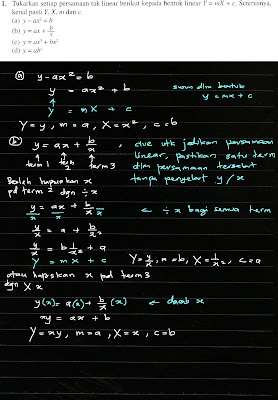 1. Tukarkan setiap persamaan tak linear berikut kepada bentuk linear Y = mX + c. Seterusnya,
kenal pasti Y, X, m dan c.
(a) y – ax² = b
(b) y = ax + b/x
(c) y = ax² + bx²
(d) y = abˣ
(a) y - ax² = b
y = ax² + b
susun dlm bentuk
y = mx + c
Y = mX + c
Y = y , m = a , X = x² , c = b
(b) y = ax + b/x , due utk jadikan persamaan
linear, pastikan satu term
term 1 term 2 term 3 dlm persamaan tersebut
Boleh hapuskan x tanpa penyebut y/x
pd term 2 dgn ÷ x
y/x = ax/x + b/x/x ← ÷ x bagi semua term
y/x = a + b/x²
y/x = b 1/x² + a
Y = mX + c Y = y/x , m = b, X = 1/x² , c = a
atau hapuskan x pd term 3
dgn X x
y(x) = a(x) + b/x (x) ← darab x
xy = ax + b
Y = xy , m = a , X = x , c = b